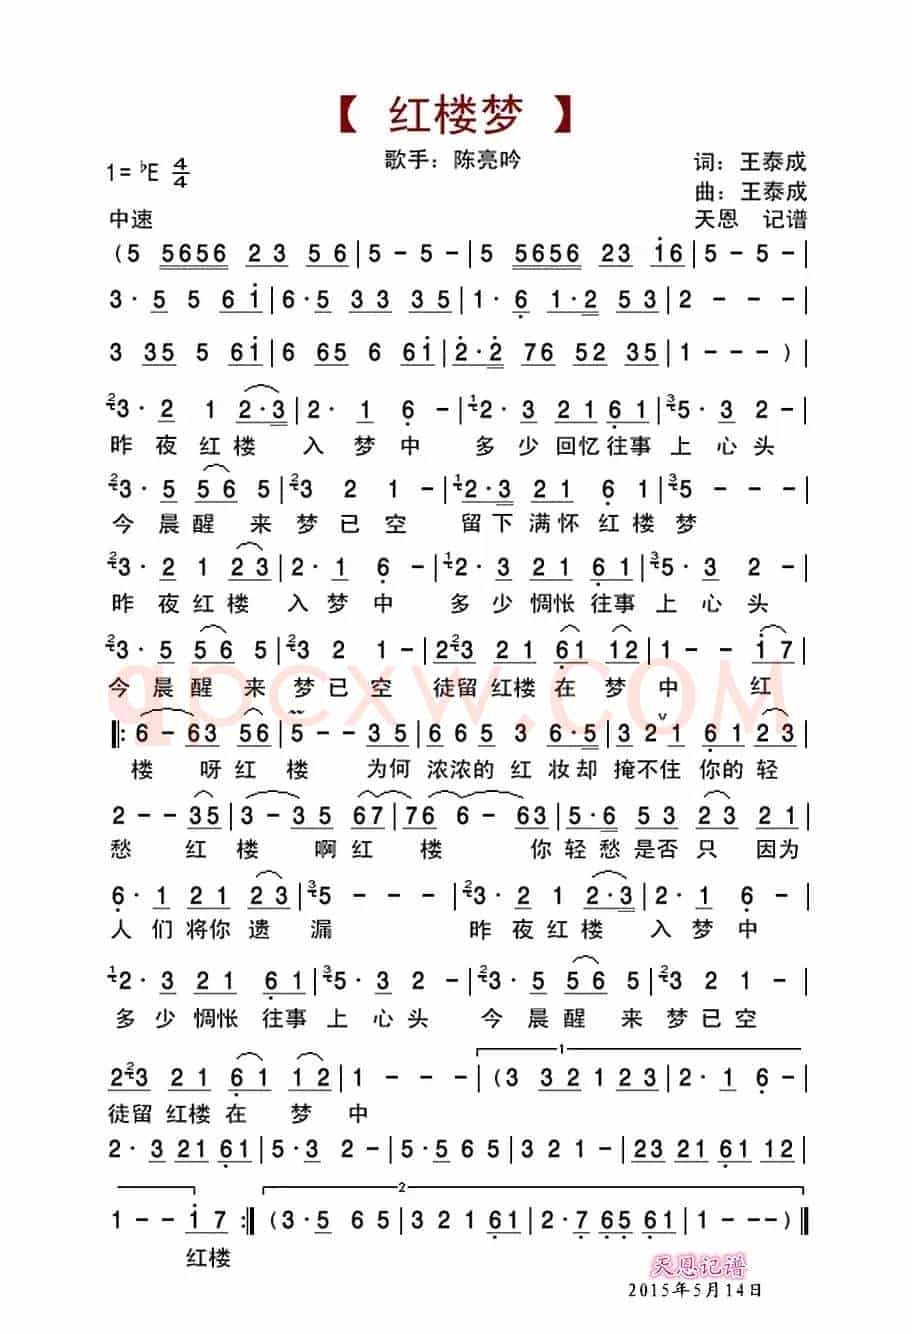 【 红楼梦 】
歌手：陈亮吟
词：王泰成
1=♭E 4/4
曲：王泰成
中速
天恩 记谱
(5 5656 2 3 5 6|5 - 5 -|5 5656 23 i6|5 - 5 -|
3· 5 5 6 i|6·5 3 3 3 5|1· 6 1·2 5 3|2 - - -|
3 35 5 6i|6 65 6 6i|2·2 76 52 35|1 - - - )|
3· 2 1 2·3|2· 1 6 -|2· 3 2 1 6 1|5· 3 2 -|
昨 夜 红 楼 入 梦 中 多 少 回忆 往事 上 心 头
3· 5 5 6 5|3 2 1 -|2·3 2 1 6 1|5 - - -|
今 晨 醒 来 梦 已 空 留 下 满 怀 红 楼 梦
3· 2 1 2 3|2· 1 6 -|2· 3 2 1 6 1|5· 3 2 -|
昨 夜 红 楼 入 梦 中 多 少 惆怅 往事 上 心 头
3· 5 5 6 5|3 2 1 -|23 2 1 6 1 1 2|1 - - i 7|
今 晨 醒 来 梦 已 空 徒留 红楼 在 梦 中 红
qpcxw.COM
‖: 6 - 63 56|5 - - 35|6 65 3 6·5|3 2 1 6 1 2 3|
楼 呀 红 楼 为何 浓浓的 红 妆却 掩不住 你的 轻
2 - - 35|3 - 35 67|76 6 - 63|5·6 53 23 21|
愁 红 楼 啊 红 楼 你 轻 愁 是否 只 因为
6· 1 2 1 2 3|5 - - -|3· 2 1 2·3|2· 1 6 -|
人 们 将你 遗 漏 昨 夜 红 楼 入 梦 中
2· 3 2 1 6 1|5· 3 2 -|3· 5 5 6 5|3 2 1 -|
多 少 惆怅 往事 上 心 头 今 晨 醒 来 梦 已 空
1
23 2 1 6 1 1 2|1 - - -|(3 3 2 1 2 3|2· 1 6 -|
徒留 红楼 在 梦 中
2· 3 21 61|5·3 2 -|3·5 56 5|3 2 1 -|23 21 61 12|
2
1 - - i 7 :‖(3·5 6 5|3 2 1 61|2·7 65 61|1 - - -)‖
红楼
天恩记谱
2015年5月14日